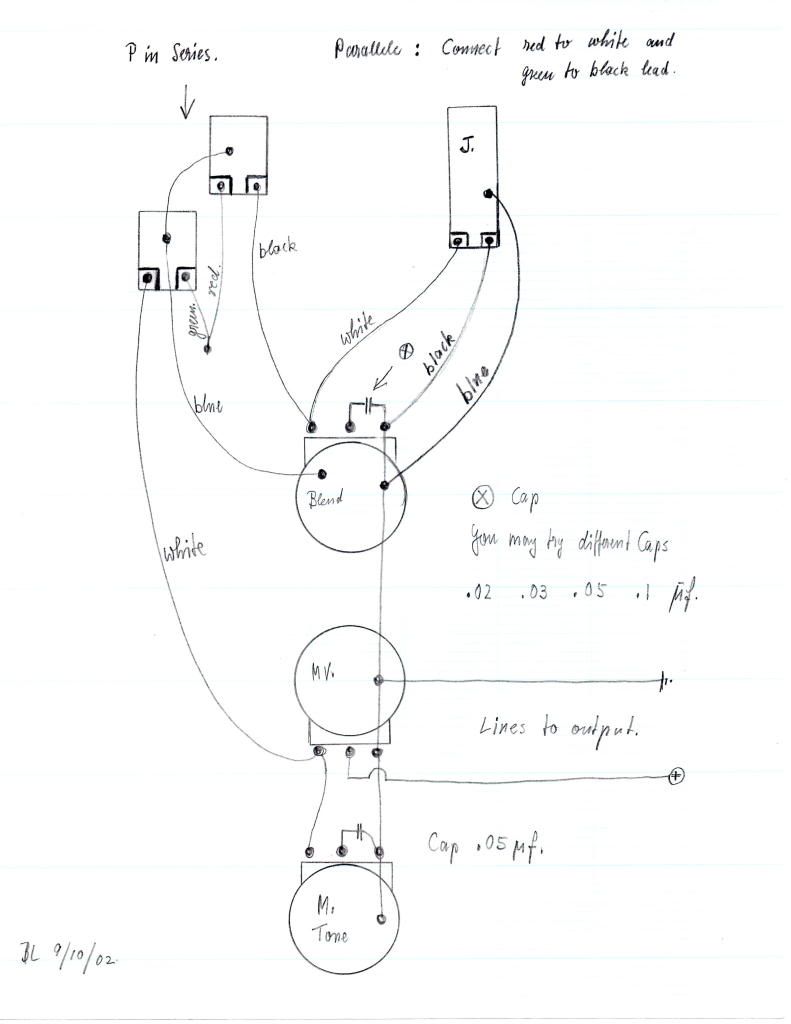 P in Series.
Parallele : Connect red to white and
green to black lead.
J.
black
red.
green.
white
black
blue
blue
Blend
Cap
You may try different Caps
.02 .03 .05 .1 µf.
white
MV.
Lines to output.
+
Cap .05 µf.
M.
Tone
BL 9/10/02.